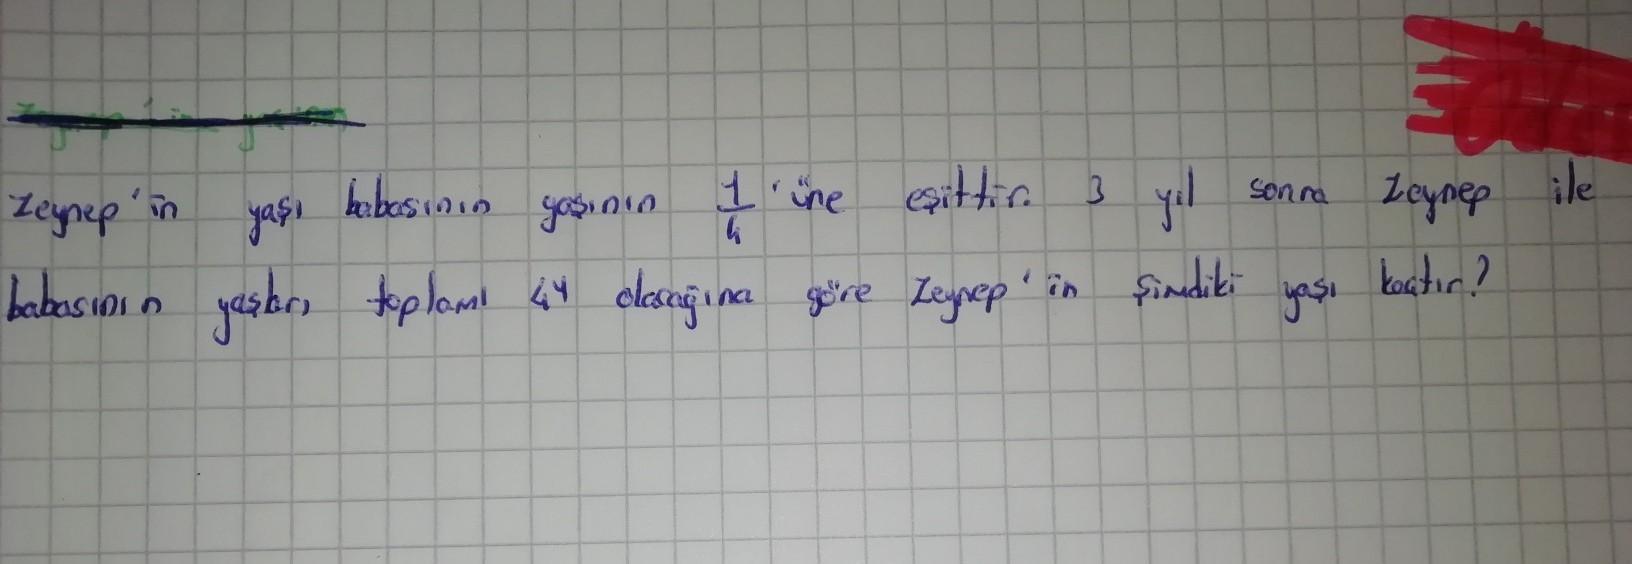 Zeynep'in yaşı babasının yaşının 1/4 'üne eşittir. 3 yıl sonra Zeynep ile
babasının yaşları toplamı 44 olacağına göre Zeynep'in şimdiki yaşı kaçtır?